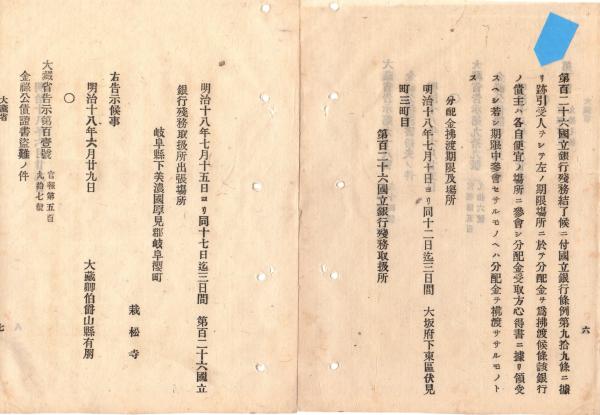 第百二十六國立銀行殘務結了候ニ付國立銀行條例第九拾九條ニ據
リ跡引受人ヲシテ左ノ期限場所ニ於テ分配金ヲ爲拂渡候條該銀行
ノ債主ハ各自便宜ノ場所ニ參會シ分配金受取方心得書ニ據リ領受
スヘシ若シ期限中參會セサルモノヘハ分配金ヲ拂渡ササルモノト
ス
分配金拂渡期限及場所
明治十八年七月十日ヨリ同十二日迄三日間 大坂府下東區伏見
町三町目
第百二十六國立銀行殘務取扱所
六
明治十八年七月十五日ヨリ同十七日迄三日間 第百二十六國立
銀行殘務取扱所出張場所
岐阜縣下美濃國厚見郡岐阜櫻町
栽松寺
右告示候事
明治十八年六月廿九日
大藏卿伯爵松方正義
〇
大藏省告示第百壹號 官報第五百九拾七號
金祿公債證書盜難ノ件
大藏省
七